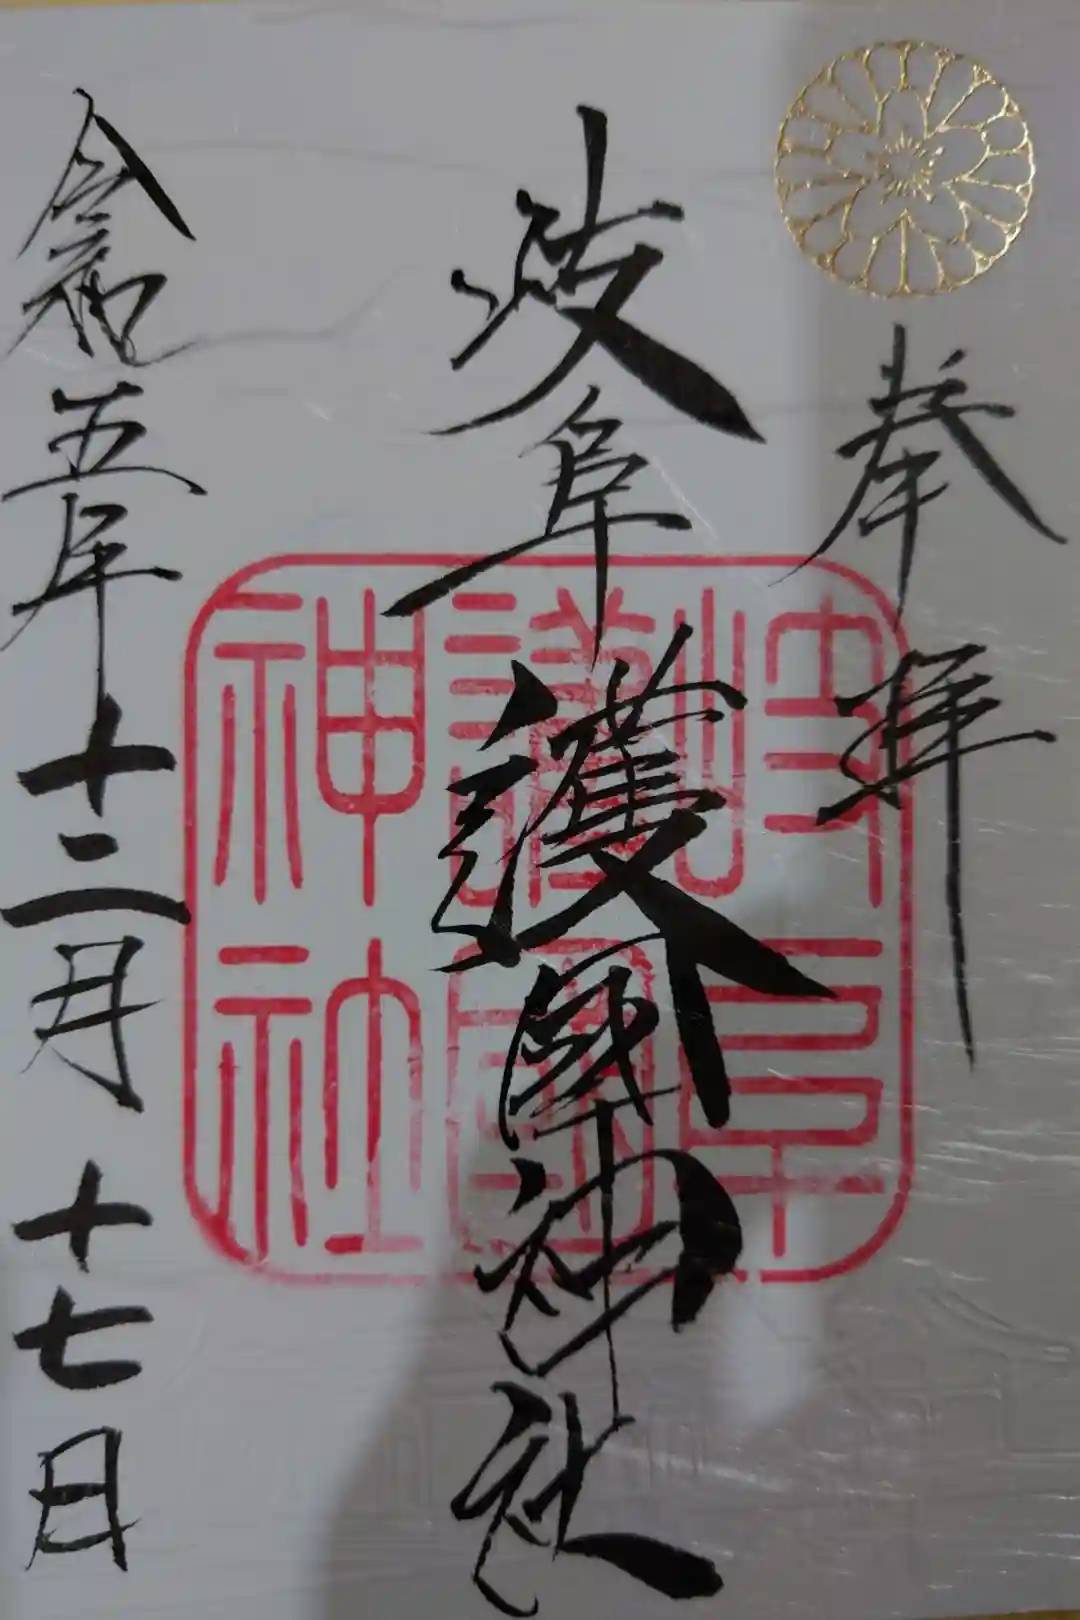 奉拝
岐阜護國神社
岐阜
護國
神社
令和五年十二月十七日